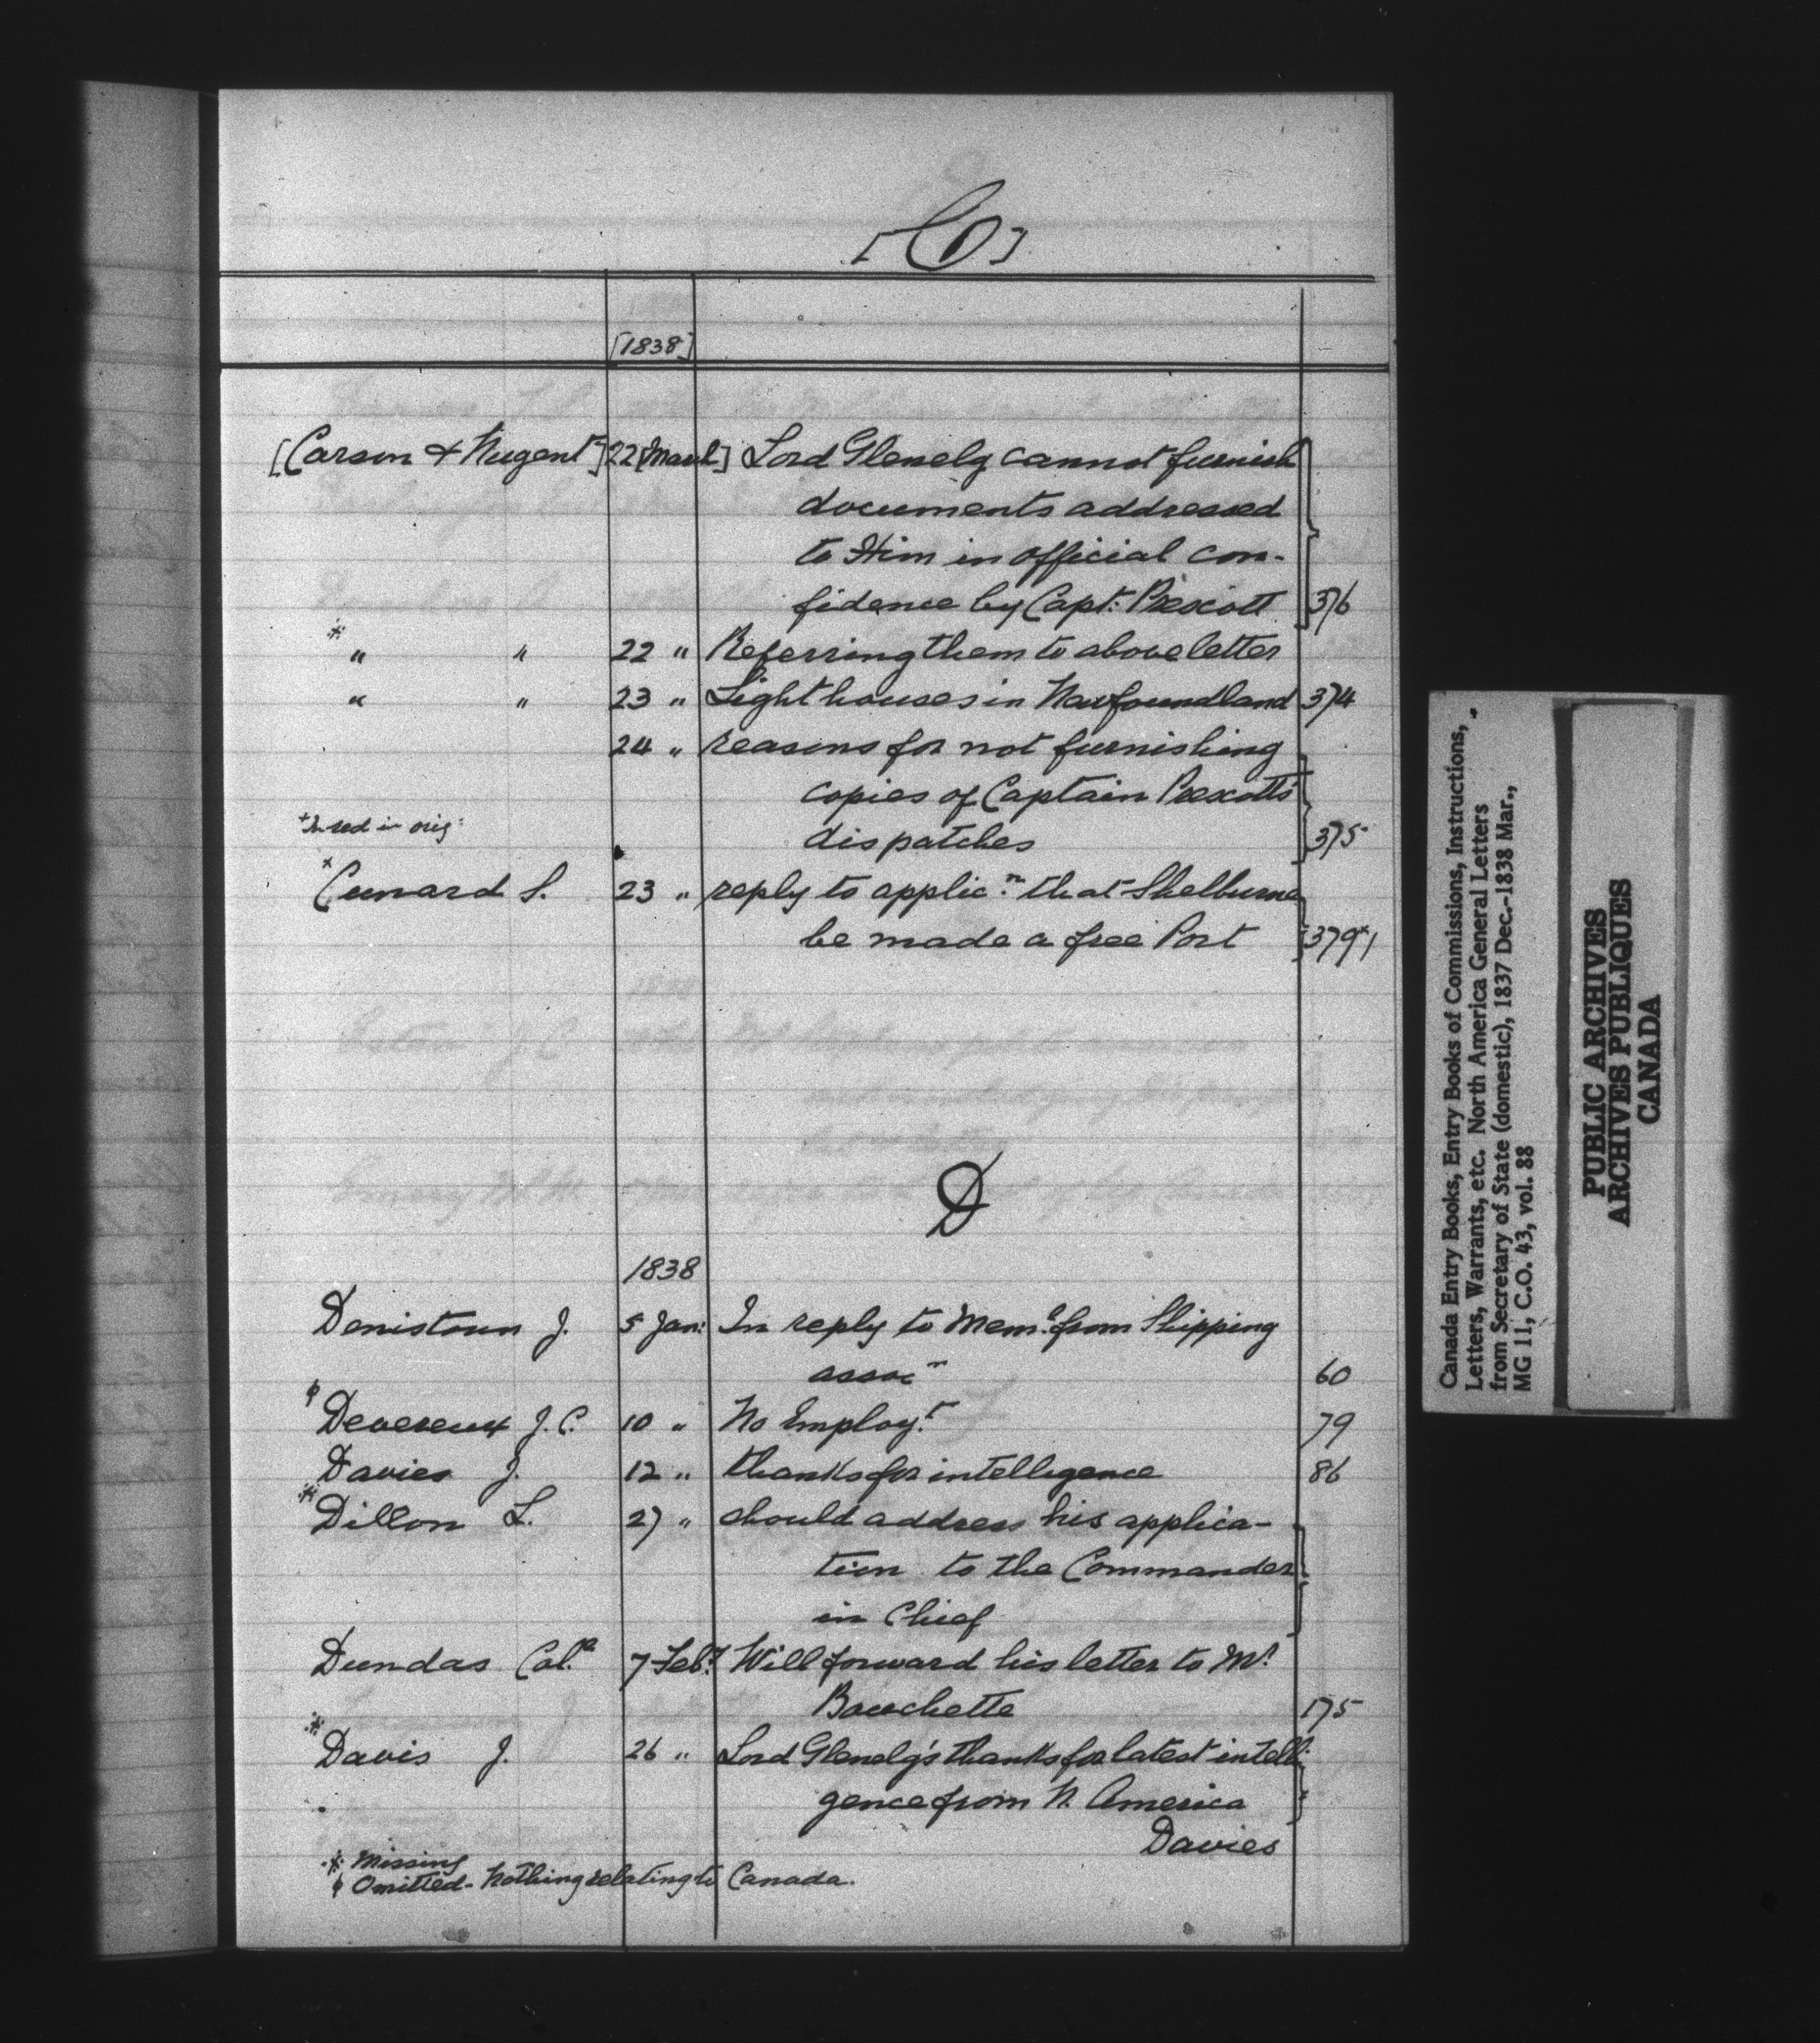 [C]
[1838]
[Carson & Nugent] 22 [March] Lord Glenelg cannot furnish
documents addressed
to Him in official con-
fidence by Capt: Prescott 376
※ " " 22 " Referring them to above letter
" " 23 " Light houses in Newfoundland 374
24 " reasons for not furnishing
copies of Captain Prescott's
dispatches 375
+ In red in orig:
x Cunard S. 23 " reply to applicn. that Shelburne
be made a free Port 379*1
D
1838
Denistoun J. 5 Jan: In reply to Meml. from Shipping
assocn 60
φ Devereux J. C. 10 " No Employt. 79
Davies J. 12 " thanks for intelligence 86
※ Dillon L. 27 " should address his applica-
tion to the Commander
in Chief
Dundas Col. 7 Feby. Will forward his letter to Mr.
Bouchette 175
※ Davis J. 26 " Lord Glenelg's thanks for latest intelli-
gence from N. America
Davies
※ Missing
φ Omitted - Nothing relating to Canada.
Canada Entry Books, Entry Books of Commissions, Instructions,
Letters, Warrants, etc. North America General Letters
from Secretary of State (domestic), 1837 Dec.-1838 Mar.,
MG 11, C.O. 43, vol. 88
PUBLIC ARCHIVES
ARCHIVES PUBLIQUES
CANADA